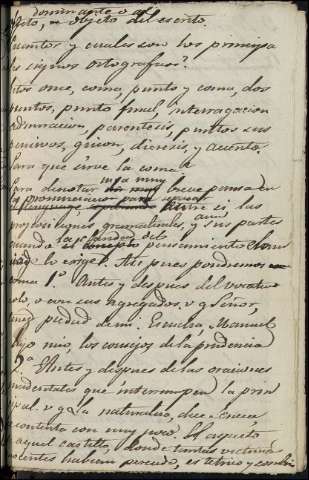 dominante o ob
jeto, u objeto del escrito.
Cuantos y cuales son los principa
les signos ortografos?
Son once, coma, punto y coma, dos
puntos, punto final, interrogacion
admiracion, parentesis, puntos sus
pensivos, guion, dieresis, y acento.
Para que sirve la coma?
una muy
Para denotar breve pausa en
la pronunciacion para
entre si las
proposiciones gramaticales, y aun sus partes
cuando la claridad del pensamiento
lo exige. Asi pues pondremos
coma 1º Antes y despues del vocativo
solo, o con sus agregados. v g Señor,
tened piedad de mi. Escucha, Manuel
hijo mio, los consejos de la prudencia
2ª Antes y despues de las oraciones
incidentales que interrumpen la prin
cipal. v g a la naturaleza, dice Ciceron
se contenta con muy poco. El aspecto
de aquel castillo, donde tantas victimas
inocentes habian perecido, es tetrico y sombrio